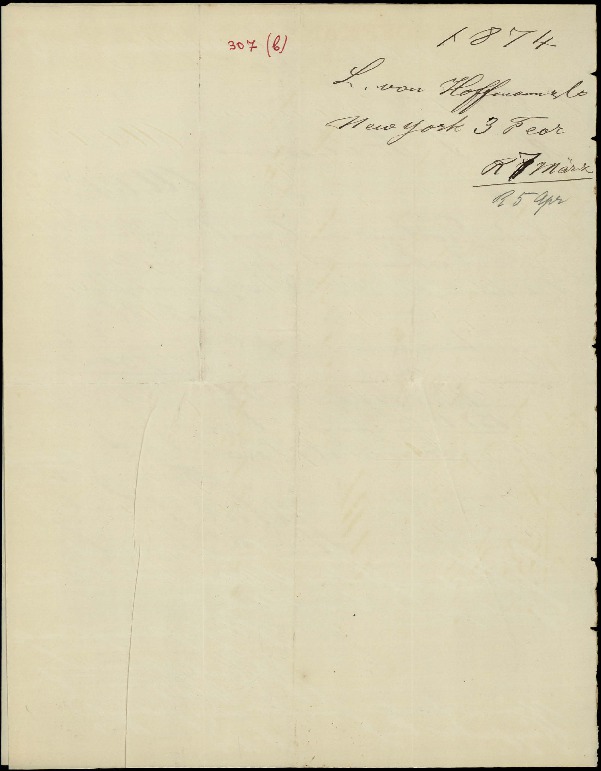 307 (b)
1874
L. von Hoffmann & Co
New York 3 Febr
R 7 März
R 5 Apr